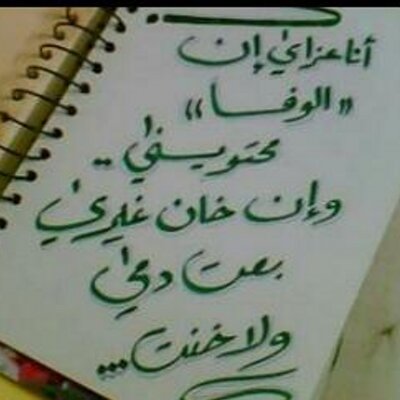 أنا عزاي إن
"الوفـــا"
محتويـــني..
وإن خان غيري
بعت دمي
ولا خنت...